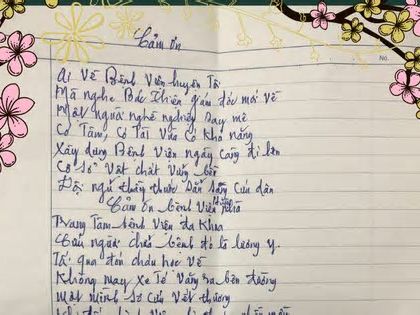 Cảm ơn
No.
Ai Về Bệnh Viện huyện Tôi
Mà nghe Bác Thiện giám đốc mới về
Một người nghề nghiệp say mê
Có Tâm, Có Tài Vừa Có Khả năng
Xây dựng Bệnh Viện ngày Càng đi lên
Cơ sở Vật chất Vững bền
Đội ngũ thầy thuốc Sẵn Sàng Cứu dân
Cảm ơn bệnh Viện nghĩa
Trung Tâm bệnh Viện đa Khoa
Cứu người chữa bệnh đó là lương y.
Tối qua đón cháu học về
Không may xe Té Văng ra bên đường
Một mình sơ cứu Vết thương